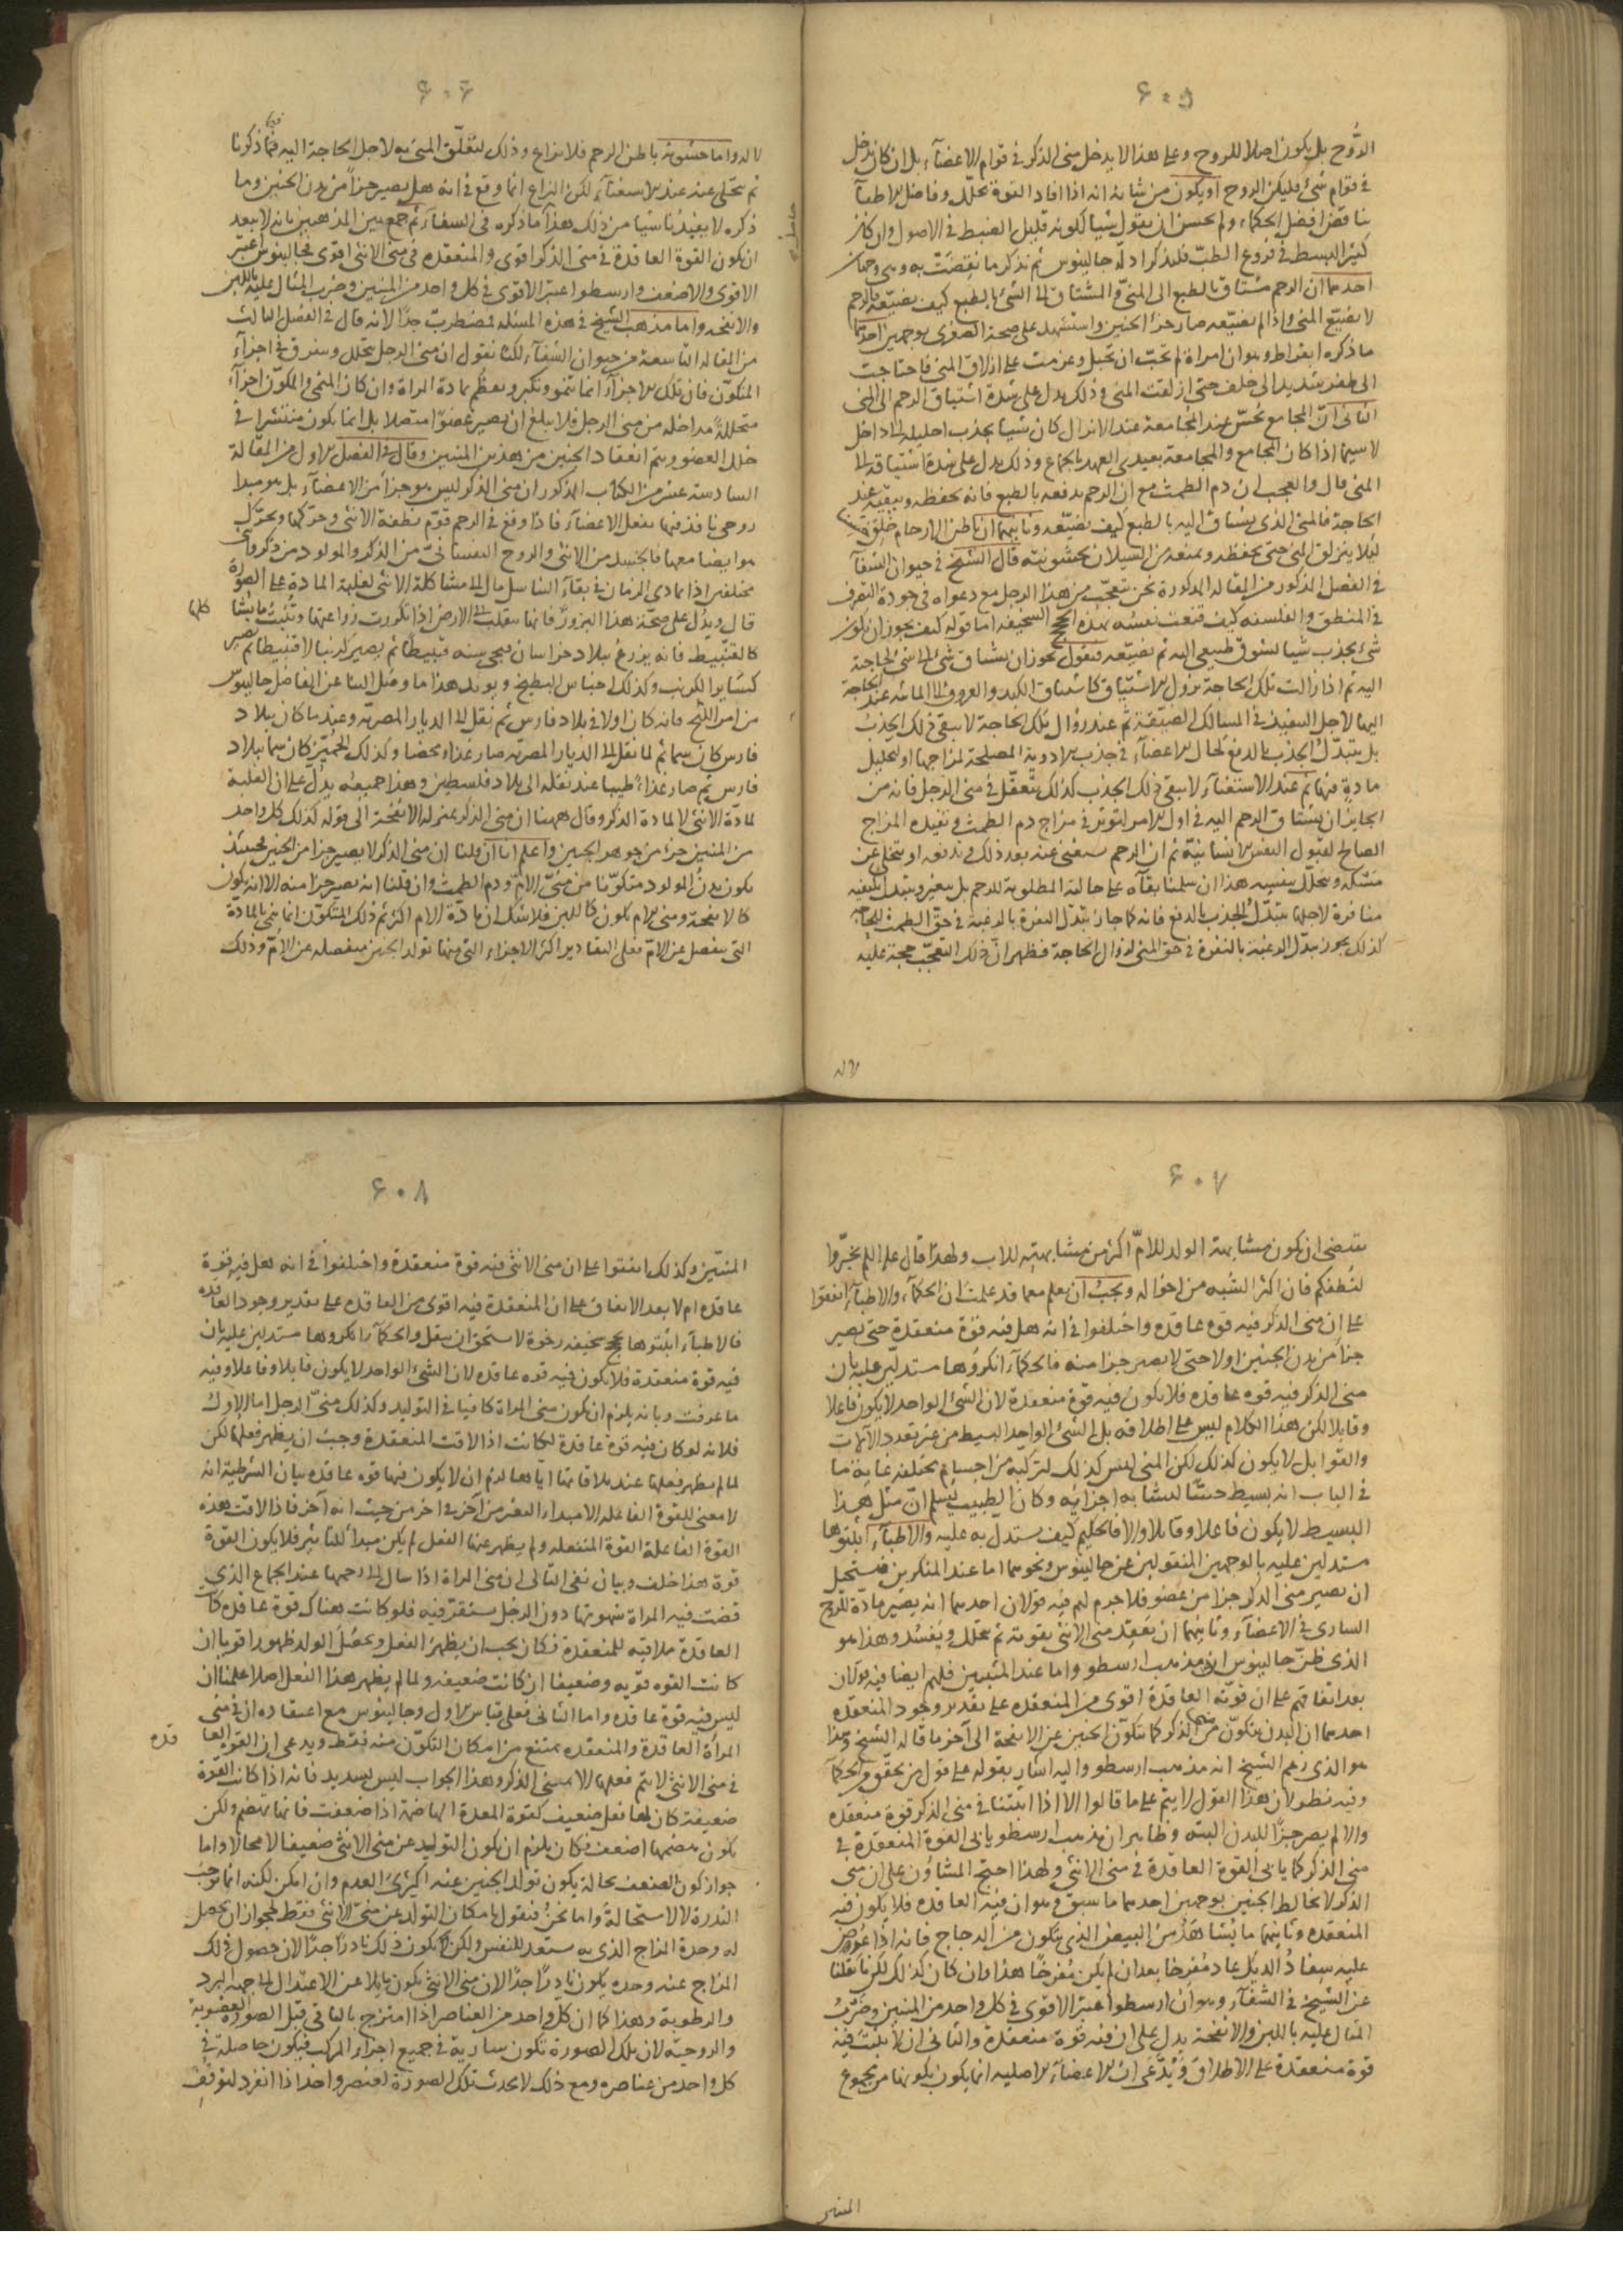 ٦٠٥
الرُّوح بل يكون اصلا للروح وعلى هذا لا يدخل منى الذكر فى قوام الاعضآء بل ان كان يدخل
فى قوام شىء فليكن الروح او يكون من شانه انه اذا افاد القوة تحلّل وفاضل الاطبآ
يناقض افضل الحكماء ولم يحسن ان يقول شيا لكونه قليل الضبط فى الاصول وان كان
كثير البسط فى فروع الطبّ فلنذكر ادلّة جالينوس ثم نذكر ما نقضت به وهى وجهان
احدهما ان الرحم مشتاق بالطبع الى المنىّ والمشتاق الى الشىء بالطبع كيف يضيّعه فالرحم
لا يضيّع المنى واذا لم يضيّعه صار جزء الجنين واستشهد على صحة الصغرى بوجهين احدهما
ما ذكره ابقراط وهو ان امراة لم تحبّ ان تحبل وعزمت على ازلاق المنى فاحتاجت
الى طفر شديد الى خلف حتى ازلقت المنى وذلك يدل على شدة اشتياق الرحم الى المنى
الثانى انّ المجامع يحسّ عند المجامعة عند الانزال كان شيا يجذب احليله الى داخل
لا سيما اذا كان المجامع والمجامعة بعيدى العهد بالجماع وذلك يدل على شدة اشتياقه الى
المنى قال والعجب ان دم الطمث مع ان الرحم يدفعه بالطبع فانه يحفظه ويبقيه عند
الحاجة فالمنى الذى يشتاق اليه بالطبع كيف يضيّعه وثانيهما ان باطن الارحام خلق
ليلا ينزلق المنى حتى يحفظه ويمنعه من السيلان بخشونته قال الشيخ فى حيوان الشفآ
فى الفصل المذكور من المقالة المذكورة نحن نتعجّب من هذا الرجل مع دعواه فى جودة التصرف
فى المنطق والفلسفه كيف قنعت نفسه بهذه الحجج السخيفه اما قوله كيف يجوز ان يكون
شىء يجذب شيا لشوق طبيعى اليه ثم يضيّعه فنقول يجوز ان يشتاق شىء الى شىء لحاجة
اليه ثم اذا زالت تلك الحاجة يزول الاشتياق كاشتياق الكبد والعروق الى المائيه عند الحاجة
اليها لاجل التنفيذ فى المسالك الضيّقة ثم عند زوال تلك الحاجة لا يبقى ذلك الجذب
بل يتبدّل الجذب بالدفع كحال الاعضآء فى جذب الادوية المصلحة لمزاجها او لتحليل
مادة فيها ثم عند الاستغنآء لا يبقى ذلك الجذب كذلك نتعقّل فى منى الرجل فانه من
الجايز ان يشتاق الرحم اليه فى اول الامر لتوثر فى مزاج دم الطمث وتفيده المزاج
الصالح لقبول النفس الانسانية ثم ان الرحم يستغنى عنه بعد ذلك فيدفعه او يتخلى عن
مسكه ويتحلّل بنفسه هذا ان سلمنا بقآه على حالته المطلوبة للرحم بل يتغير ويتبدل بكيفيه
منافرة لاجلها يتبدّل الجذب بالدفع فانه كما جاز تبدّل النفرة بالرغبة فى حقّ الطمث للحاجة
كذلك يجوز تبدّل الرغبة بالنفرة فى حق المنى لزوال الحاجة فظهر انّ ذلك التعجّب حجة عليه
لا له
٦٠٦
لا له واما خشونة باطن الرحم فلا نزاع وذلك لتعلّق المنى به لاجل الحاجة اليه فيما ذكرنا
ثم تخلى عنه عند الاستغنآء لكن النزاع انما وقع فى انه هل يصير جزءًا من بدن الجنين وما
ذكره لا يفيدنا شيا من ذلك هذا ما ذكره فى الشفآء ثم جمع بين المذهبين بانه لا يبعد
ان يكون القوة العاقدة فى منى الذكر اقوى والمنعقده فى منى الانثى اقوى فجالينوس اعتبر
الاقوى والاضعف وارسطو اعتبر الاقوى فى كل واحد من المنيين وضرب المثال عليه باللبن
والانفحه واما مذهب الشيخ فى هذه المسئله فمضطرب جدًا لانه قال فى الفصل الثالث
من المقالة التاسعة من حيوان الشفآء لكنا نقول ان منى الرجل يتحلل ويتفرق فى اجزآء
المتكوّن فان تلك الاجزآء انما تنمو وتكبر وتعظم بمادة المراة وان كان المنى والمكوّن اجزآء
متحللةً مداخلة من منى الرجل فلا يبلغ ان يصير عضوًا متصلا بل انما يكون منتشرا فى
خلل العضو ويتم انعقاد الجنين من هذين المنيين وقال فى الفصل الاول من المقالة
السادسة عشر من الكتاب المذكور ان منى الذكر ليس هو جزأ من الاعضآء بل هو مبدا
روحى نافذ فيها يفعل الاعضآء فاذا وقع فى الرحم قوّم نطفة الانثى وحرّكها وتحرّك
هو ايضا معها فالجسد من الانثى والروح النفسانىّ من الذكر والمولود من ذكر وانثى
مختلفين اذا تمادى الزمان فى بقآء التناسل مال الى مشاكلة الانثى لغلبة المادة على الصورة
قال ويدُل على صحّة هذا البزور فانها تنقلب الى الارض اذا تكررت زراعتها ونُبتت كلها
كالقنّبيط فانه يزرع ببلاد خراسان فيجى سنه قنبيطًا ثم يصير كرنبا لا قنبيطا ثم يصير
كسائر الكرنب وكذلك اجناس البطيخ ويويد هذا ما وصل الينا عن الفاضل جالينوس
من امر اللبخ فانه كان اولا فى بلاد فارس ثم نقل الى الديار المصريه وعندما كان ببلاد
فارس كان سما ثم لما نقل الى الديار المصريه صار غذاء محضا وكذلك الجميّز كان سما ببلاد
فارس ثم صار غذاءً طيبا عند نقله الى بلاد فلسطين وهذا جميعه يدل على ان الغلبة
لمادّة الانثى لا لمادة الذكر وقال ههنا ان منى الذكر بمنزلة الانفحة الى قوله كذلك كل واحد
من المنيين جزء من جوهر الجنين واعلم انا ان قلنا ان منى الذكر لا يصير جزا من الجنين فحينئذ
يكون بدن المولود متكوّنا من منىّ الامّ ودم الطمث وان قلنا انه يصير جزا منه الا انه يكون
كالانفحة ومنى الام يكون كاللبن فلا شك ان مادّة الام اكثر ثم ذلك المتكوّن انما ينمى بالمادة
التى ينفصل عن الامّ فعلى التقادير اكثر الاجزاء التى منها تولد الجنين منفصله عن الامّ وذلك
٦٠٧
يقتضى ان يكون مشابهة الولد للامّ اكثر من مشابهته للاب ولهذا قال عليه السلم تخيّروا
لنُطفكم فان اكثر الشبه من اخواله ويجبُ ان يعلم معما قد علمت ان الحكمآء والاطبآء اتفقوا
على ان منى الذكر فيه قوه عاقده واختلفوا فى انه هل فيه قوّة منعقدة حتى يصير
جزأ من بدن الجنين اولا حتى لا يصير جزا منه فالحكمآء انكروها مستدلّين عليه بان
منى الذكر فيه قوه عاقده فلا يكون فيه قوة منعقدة لان الشىء الواحد لا يكون فاعلا
وقابلا لكن هذا الكلام ليس على اطلاقه بل الشىء الواحد البسيط من غير تعدد الالات
والقوابل لا يكون كذلك لكن المنى ليس كذلك لتركبه من اجسام مختلفه غاية ما
فى الباب انه بسيط حسّا لتشابه اجزائه وكان الطبيب يُسلم انّ مثل هذا
البسيط لا يكون فاعلا وقابلا والا فالحكيم كيف يستدل به عليه والاطبآء اثبتوها
مستدلين عليه بالوجهين المنقولين عن جالينوس ونحوهما اما عند المنكرين فيستحيل
ان يصير منى الذكر جزا من عضو فلا جرم لهم فيه قولان احدهما انه يصير مادة للروح
السارى فى الاعضآء وثانيهما ان يَعقِد منى الانثى بقوته ثم يتحلل ويَفسُد وهذا هو
الذى ظنّ جالينوس انه مذهب ارسطو واما عند المثبتين فلهم ايضا فيه قولان
بعد اتفاقهم على ان قوته العاقدة اقوى من المنعقده على تقدير وجود المنعقده
احدهما ان البدن يتكوّن من منى الذكر كما يتكوّن الجبن عن الانفحة الى آخر ما قاله الشيخ وهذا
هو الذى زعم الشيخ انه مذهب ارسطو واليه اشار بقوله على قول من تحقّق من الحكمآ
وفيه نظر لان هذا القول لا يتم على ما قالوا الا اذا اثبتنا فى منى الذكر قوة منعقده
والا لم يصر جزءًا للبدن البته وظاهر ان مذهب ارسطو يابى القوة المنعقدة فى
منى الذكر كما يابى القوة العاقدة فى منى الانثى ولهذا احتج المشاؤن على ان منى
الذكر لا يخالط الجنين بوجهين احدهما ما سبق وهو ان فيه العاقده فلا يكون فيه
المنعقده وثانيهما ما يُشاهَدُ من البيض الذى يتكون من الدجاج فانه اذا عرض
عليه سِفادُ الديك عاد مُفرِخا بعد ان لم يكن مُفرِخًا هذا وان كان كذلك لكن ما نقلنا
عن الشيخ فى الشفآء وهو ان ارسطو اعتبر الاقوى فى كل واحد من المنيين وضربُ
المثال عليه باللبن والانفحة يدل على ان فيه قوة منعقدة والثانى ان لا نُثبت فيه
قوة منعقدة على الاطلاق ونُدّعى ان الاعضآء الاصليه انما يكون تكونها من مجموع
المنيين
٦٠٨
المنيّين وكذلك اتفقوا على ان منى الانثى فيه قوة منعقدة واختلفوا فى انه هل فيه قوة
عاقده ام لا بعد الاتفاق على ان المنعقدة فيه اقوى من العاقده على تقدير وجود العاقده
فالاطبآء اثبتوها بحجج سخيفه رخوة لا تستحق ان ينقل والحكمآء انكروها مستدلين عليه بان
فيه قوة منعقدة فلا يكون فيه قوه عاقده لان الشىء الواحد لا يكون قابلا وفاعلا وفيه
ما عرفت وبانه يلزم ان يكون منى المراة كافيا فى التوليد وكذلك منىّ الرجل اما الاول
فلانه لو كان فيه قوة عاقدة لكانت اذا لاقت المنعقدة وجب ان يظهر فعلها لكن
لما لم يظهر فعلها عند ملاقاتها اياها لزم ان لا يكون فيها قوه عاقده بيان الشرطية انه
لا معنى للقوة الفاعله الا مبداء التغير من آخر فى آخر من حيث انه آخر فاذا لاقت هذه
القوة الفاعلة القوة المنفعله ولم يظهر عنها الفعل لم يكن مبدأ للتاثير فلا يكون القوة
قوة هذا خلف وبيان نفى التالى ان منى المراة اذا سال الى رحمها عند الجماع الذى
قضت فيه المراة شهوتها دون الرجل يستقرّ فيه فلو كانت هناك قوة عاقده كانت
العاقدة ملاقيه للمنعقدة فكان يجب ان يظهر الفعل ويحصل الولد ظهورا قويا ان
كانت القوه قويه وضعيفا ان كانت ضعيفه ولما لم يظهر هذا الفعل اصلا علمنا ان
ليس فيه قوة عاقده واما الثانى فعلى قياس الاول وجالينوس مع اعتقاده ان فى منى
المرأة العاقدة والمنعقده يمتنع من امكان التكوّن منه فقط ويدعى ان القوة العاقده
فى منى الانثى لا يتم فعلها الا بمنى الذكر وهذا الجواب ليس بسديد فانه اذا كانت القوة
ضعيفة كان لها فعل ضعيف كقوة المعدة الهاضمة اذا ضعفت فانها تهضم ولكن
يكون هضمها اضعف فكان يلزم ان يكون التوليد عن منى الانثى ضعيفا لا محالا واما
جواز كون الضعف بحالة يكون تولد الجنين عنه كبرئ العدم وان امكن لكنه انما توجب
الندرة لا الاستحالة واما نحن فنقول بامكان التولد عن منىّ الانثى فقط لجواز ان يحصل
له وحدة المزاج الذى به يستعد للنفس ولكن يكون ذلك نادرًا جدًا لان حصول ذلك
المزاج عنه وحده يكون نادرًا جدًا لان منى الانثى يكون مايلا عن الاعتدال الى جهة البرد
والرطوبة وهذا كما ان كل واحد من العناصر اذا امتزج بالباقى قبل الصورة العضوية
والروحيّه لان تلك الصورة تكون سارية فى جميع اجزاء المركب فيكون حاصلة فى
كل واحد من عناصره ومع ذلك لا يحدث تلك الصورة لعنصر واحد اذا انفرد لتوقف